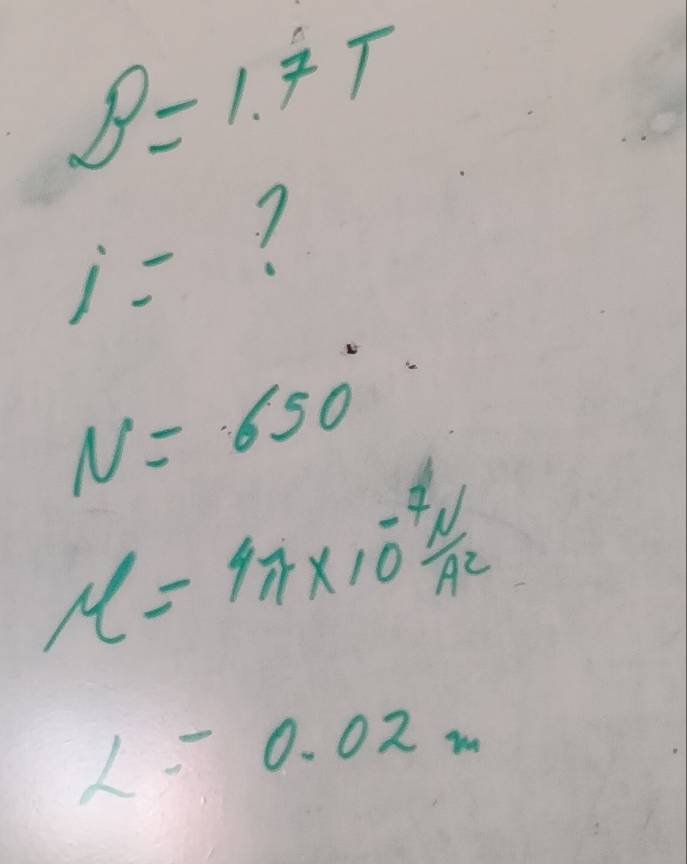 B = 1.7 T
i = ?
N = 650
μ = 4π × 10⁻⁷ N/A²
L = 0.02 m